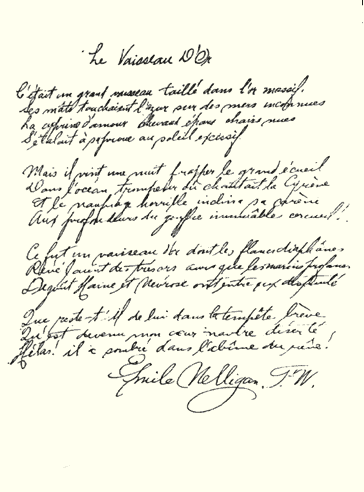 Le Vaisseau D'Or
C'était un grand vaisseau taillé dans l'or massif.
Ses mâts touchaient l'azur sur des mers inconnues
La cyprine d'amour cheveux épars chairs nues
S'étalait à sa proue au soleil excessif
Mais il vint une nuit frapper le grand écueil
Dans l'océan trompeur où chantait la Sirène
Et le naufrage horrible inclina sa carène
Aux profondeurs du gouffre immuable cercueil!
Ce fut un vaisseau d'or dont les flancs diaphanes
des trésors que les marins profanes
Dégoût Haine et Névrose ont entre eux disputé
Que reste-t-il de lui dans la tempête brève
Qu'est devenu mon cœur navire déserté
Hélas! il a sombré dans l'abîme du rêve!
Emile Nelligan.